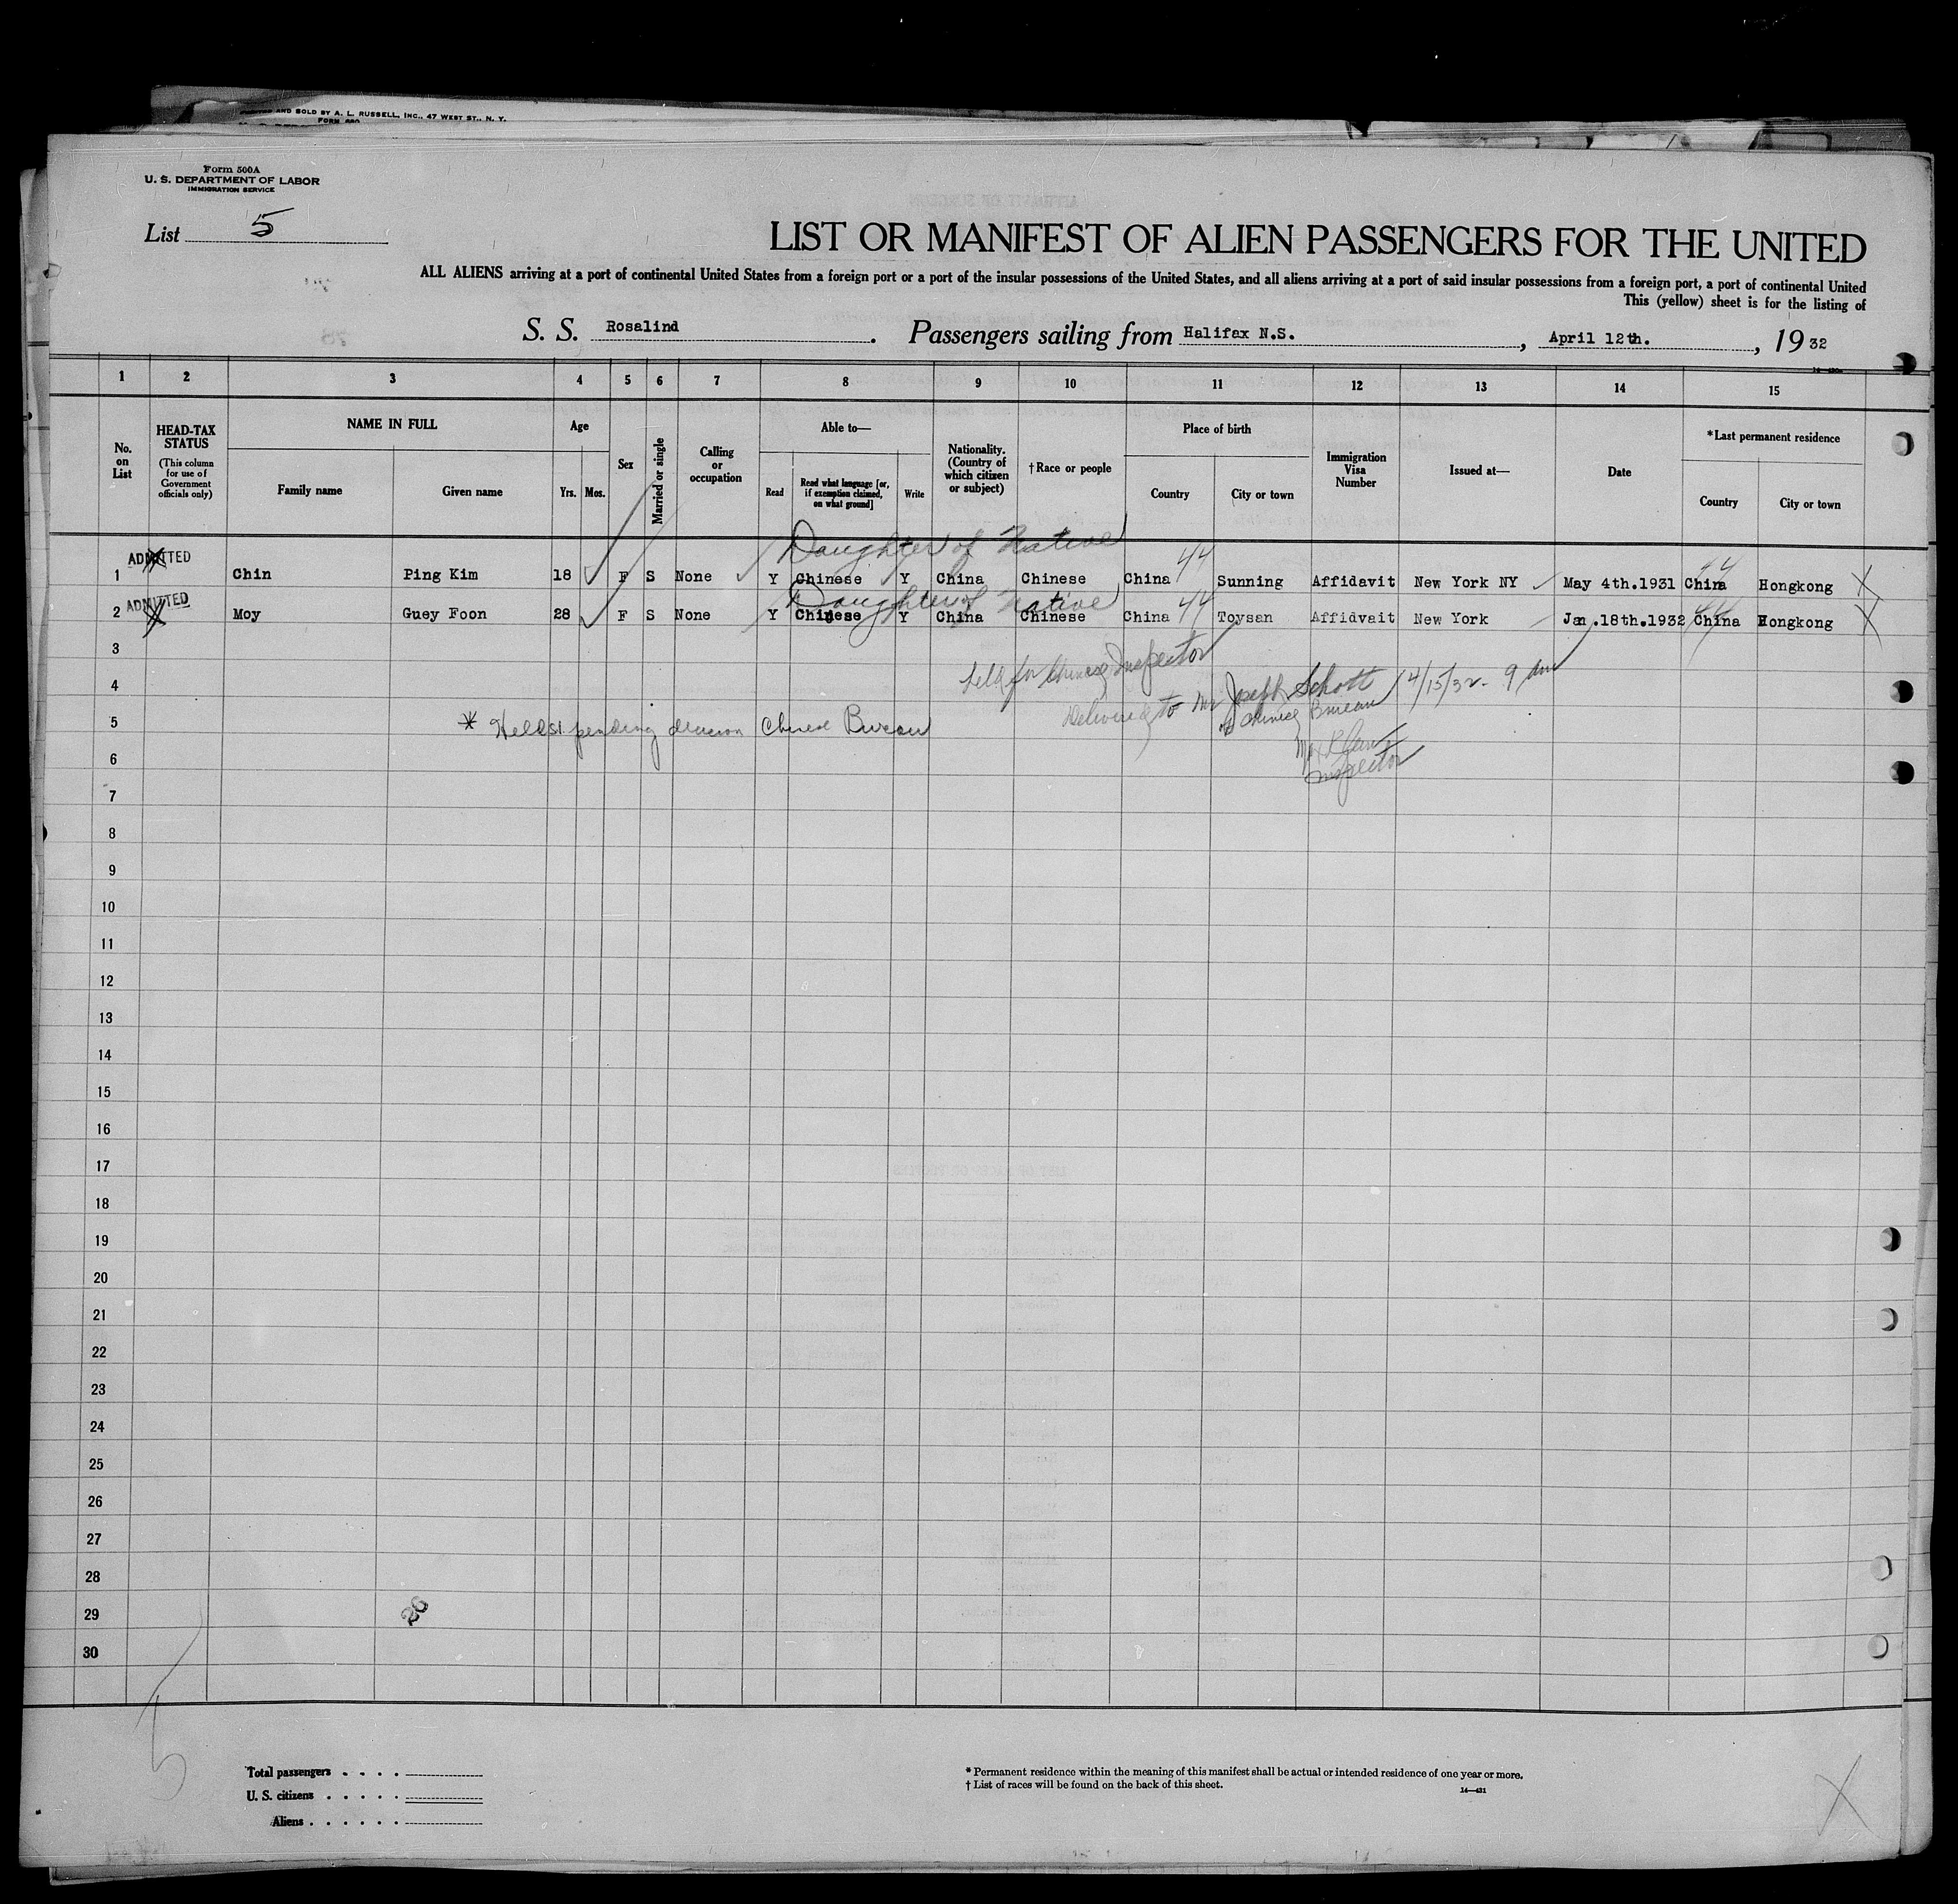 PRINTED AND SOLD BY A. L. RUSSELL, INC., 47 WEST ST., N. Y.
Form 500A
U. S. DEPARTMENT OF LABOR
IMMIGRATION SERVICE
List 5
LIST OR MANIFEST OF ALIEN PASSENGERS FOR THE UNITED
ALL ALIENS arriving at a port of continental United States from a foreign port or a port of the insular possessions of the United States, and all aliens arriving at a port of said insular possessions from a foreign port, a port of continental United
This (yellow) sheet is for the listing of
S. S. Rosalind. Passengers sailing from Halifax N.S., April 12th., 1932
1 2 3 4 5 6 7 8 9 10 11 12 13 14 15
No. on List
HEAD-TAX STATUS
(This column for use of Government officials only)
NAME IN FULL
Family name Given name
Age
Yrs. Mos.
Sex
Married or single
Calling or occupation
Able to—
Read
Read what language [or, if exemption claimed, on what ground]
Write
Nationality. (Country of which citizen or subject)
†Race or people
Place of birth
Country City or town
Immigration Visa Number
Issued at—
Date
*Last permanent residence
Country City or town
Daughter of Native
ADMITTED
1 Chin Ping Kim 18 F S None Y Chinese Y China Chinese China 44 Sunning Affidavit New York NY May 4th.1931 China 44 Hongkong X
Daughter of Native
ADMITTED
2 Moy Guey Foon 28 F S None Y Chinese Y China Chinese China 44 Toysan Affidvait New York Jan.18th.1932 China 44 Hongkong X
3
held for Chinese Inspector
4
Delivered to Mr Joseph Schott 4/15/32 - 9 am
Chinese Bureau
5
* Held pending decision Chinese Bureau
6
Inspector
7
8
9
10
11
12
13
14
15
16
17
18
19
20
21
22
23
24
25
26
27
28
29
26
30
5
Total passengers . . . .
U. S. citizens . . . . .
Aliens . . . . . .
* Permanent residence within the meaning of this manifest shall be actual or intended residence of one year or more.
† List of races will be found on the back of this sheet.
14—431
X